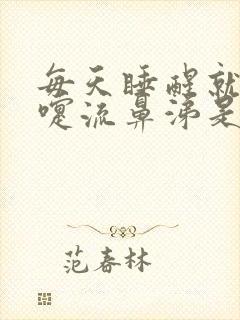 每天睡醒就
嚏流鼻涕是
范春林